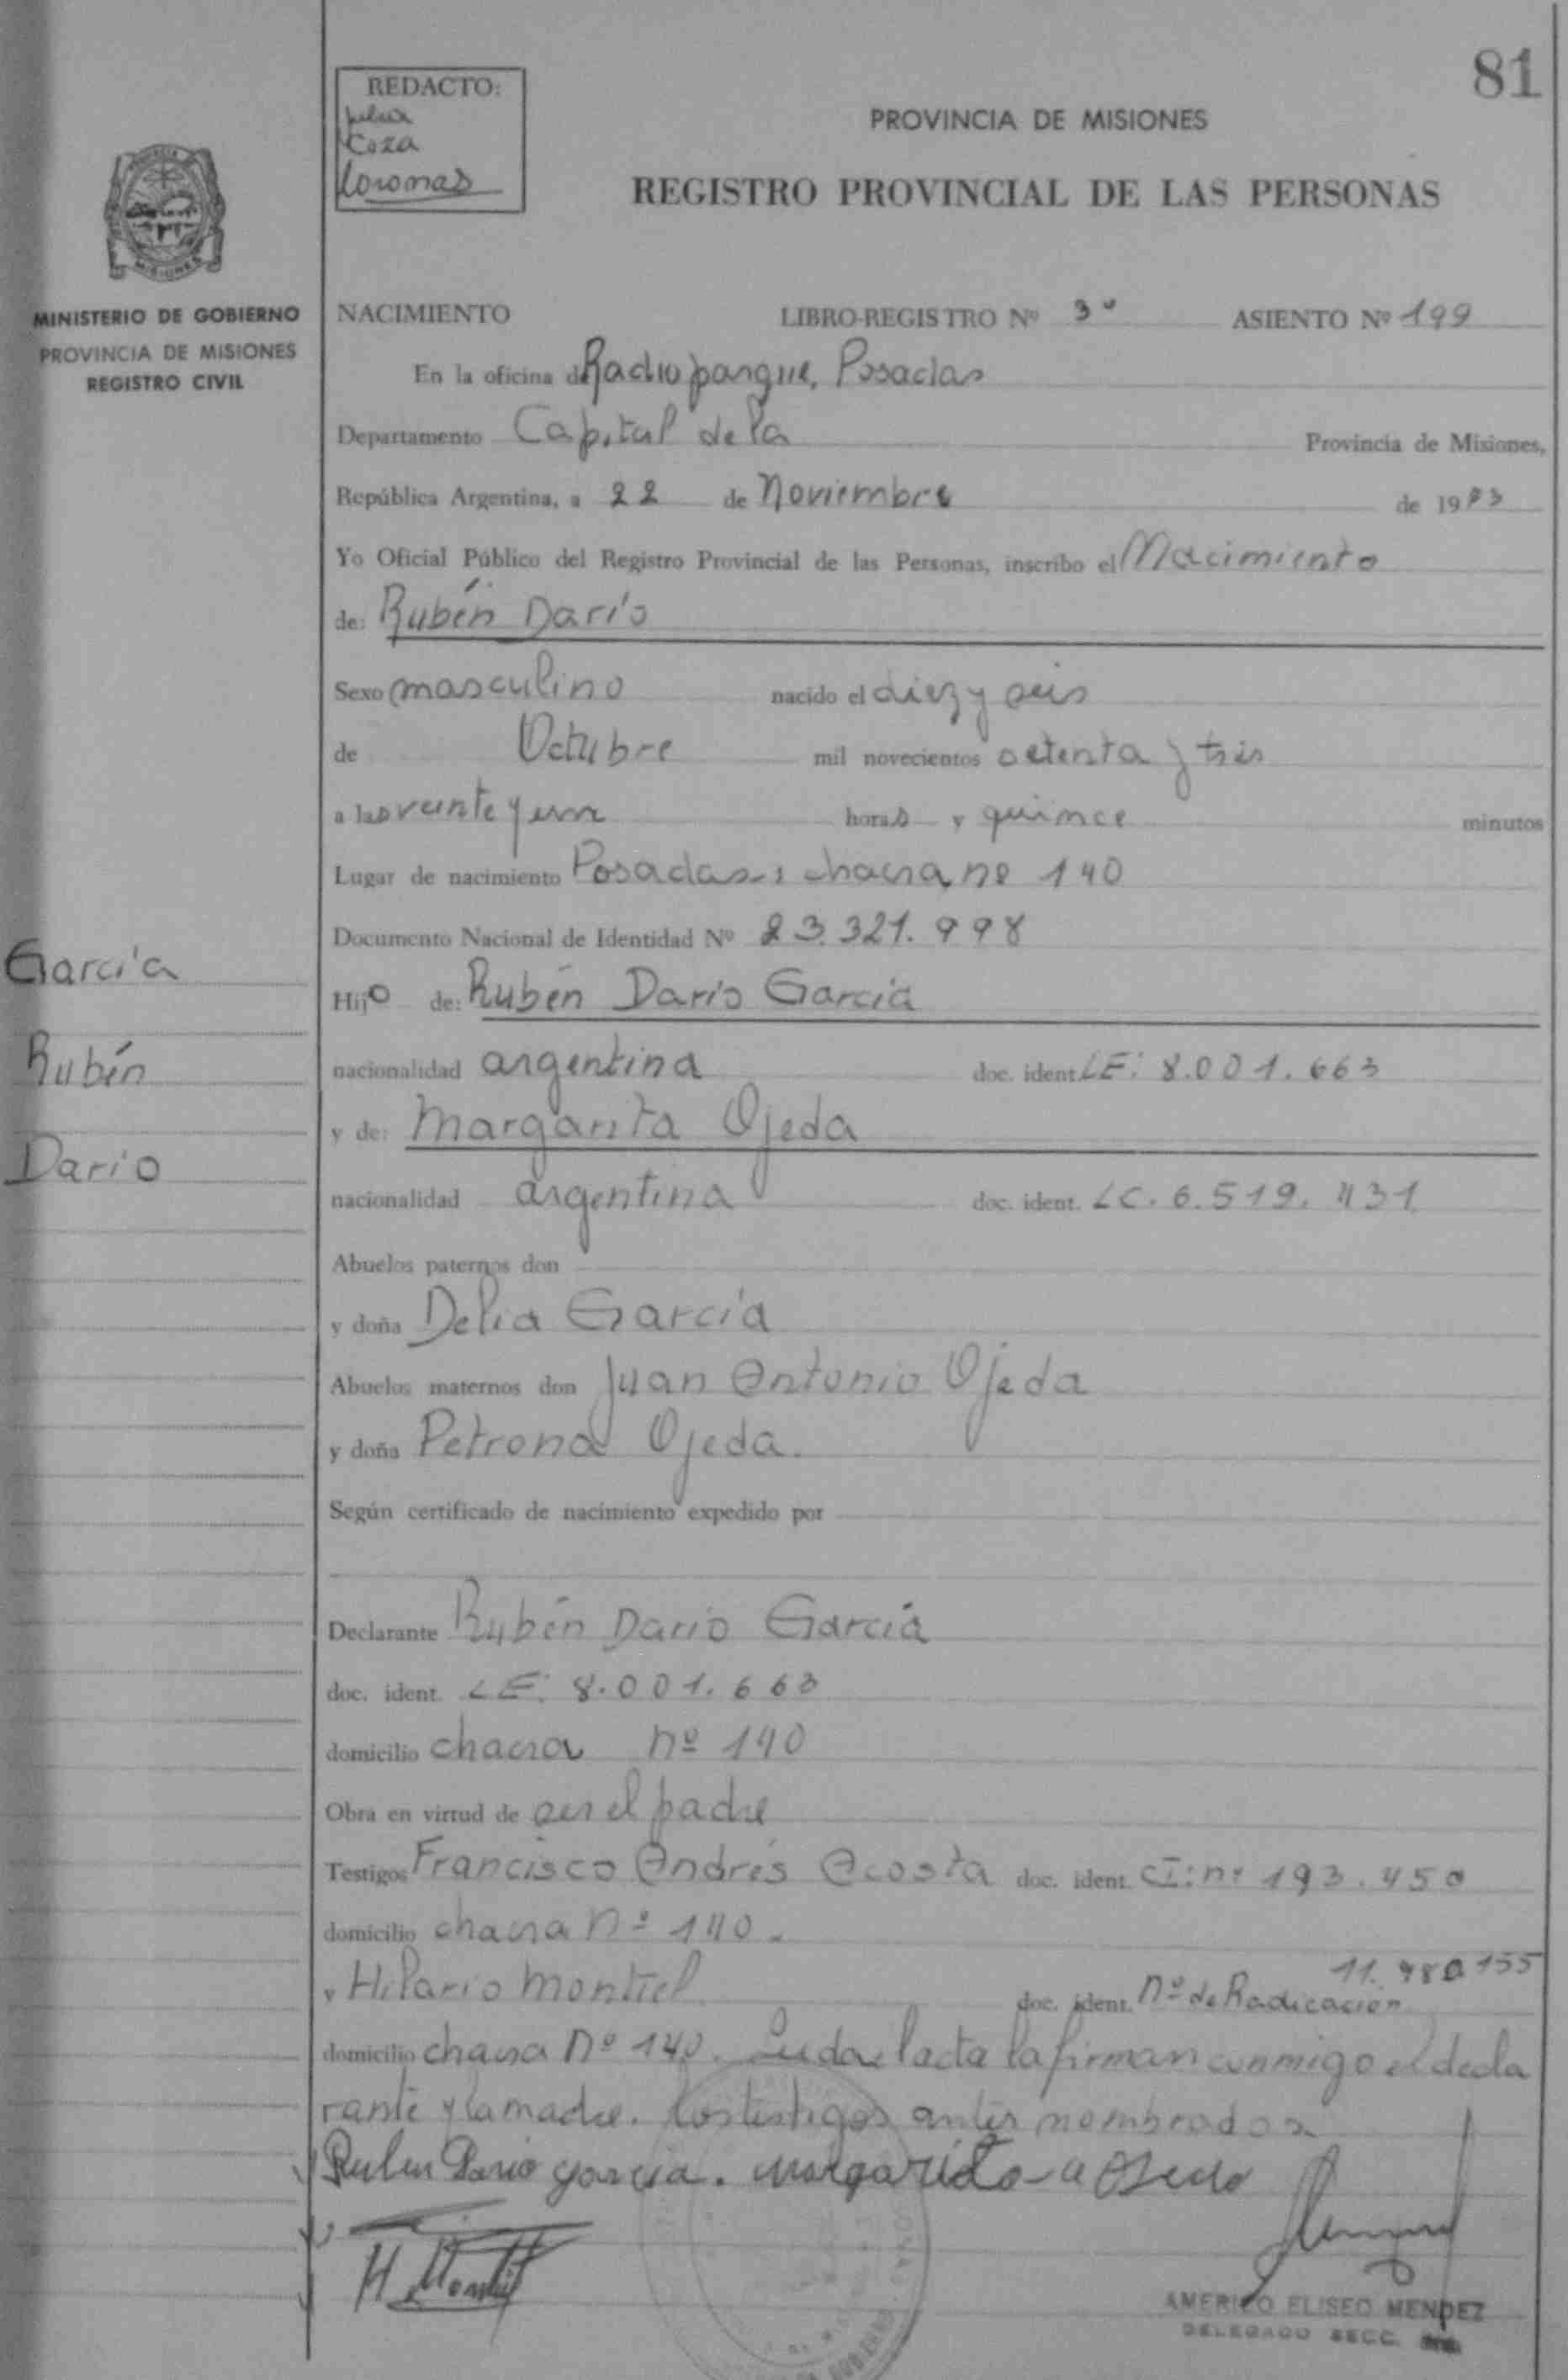 81
REDACTO:
Coza
PROVINCIA DE MISIONES
REGISTRO PROVINCIAL DE LAS PERSONAS
MISIONES
MINISTERIO DE GOBIERNO
PROVINCIA DE MISIONES
REGISTRO CIVIL
NACIMIENTO LIBRO-REGISTRO Nº 3º ASIENTO Nº 199
En la oficina de Radioparque, Posadas
Departamento Capital de la Provincia de Misiones,
República Argentina, a 22 de Noviembre de 1973
Yo Oficial Público del Registro Provincial de las Personas, inscribo el Nacimiento
de: Rubén Darío
Sexo masculino nacido el diez y seis
de Octubre mil novecientos setenta y tres
a las veinte y una horas y quince minutos
Lugar de nacimiento Posadas: chacra nº 140
Documento Nacional de Identidad Nº 23.321.998
Hijo de: Rubén Darío García
nacionalidad argentina doc. ident. LE: 8.001.663
y de: Margarita Ojeda
nacionalidad argentina doc. ident. LC. 6.519.431
Abuelos paternos don
y doña Delia García
Abuelos maternos don Juan Antonio Ojeda
y doña Petrona Ojeda.
Según certificado de nacimiento expedido por
Declarante Rubén Dario García
doc. ident. LE: 8.001.663
domicilio chacra nº 140
Obra en virtud de ser el padre
Testigos Francisco Andrés Acosta doc. ident. CI: nº 193.450
domicilio chacra nº 140.
y Hilario Montiel doc. ident. nº de Radicación 11.980155
domicilio chacra nº 140. Leída el acta la firman conmigo el decla
rante y la madre. los testigos antes nombrados
Ruben Dario garcia. margarita
H. Montiel
AMERICO ELISEO MENDEZ
DELEGADO SECC.
García
Rubén
Dario